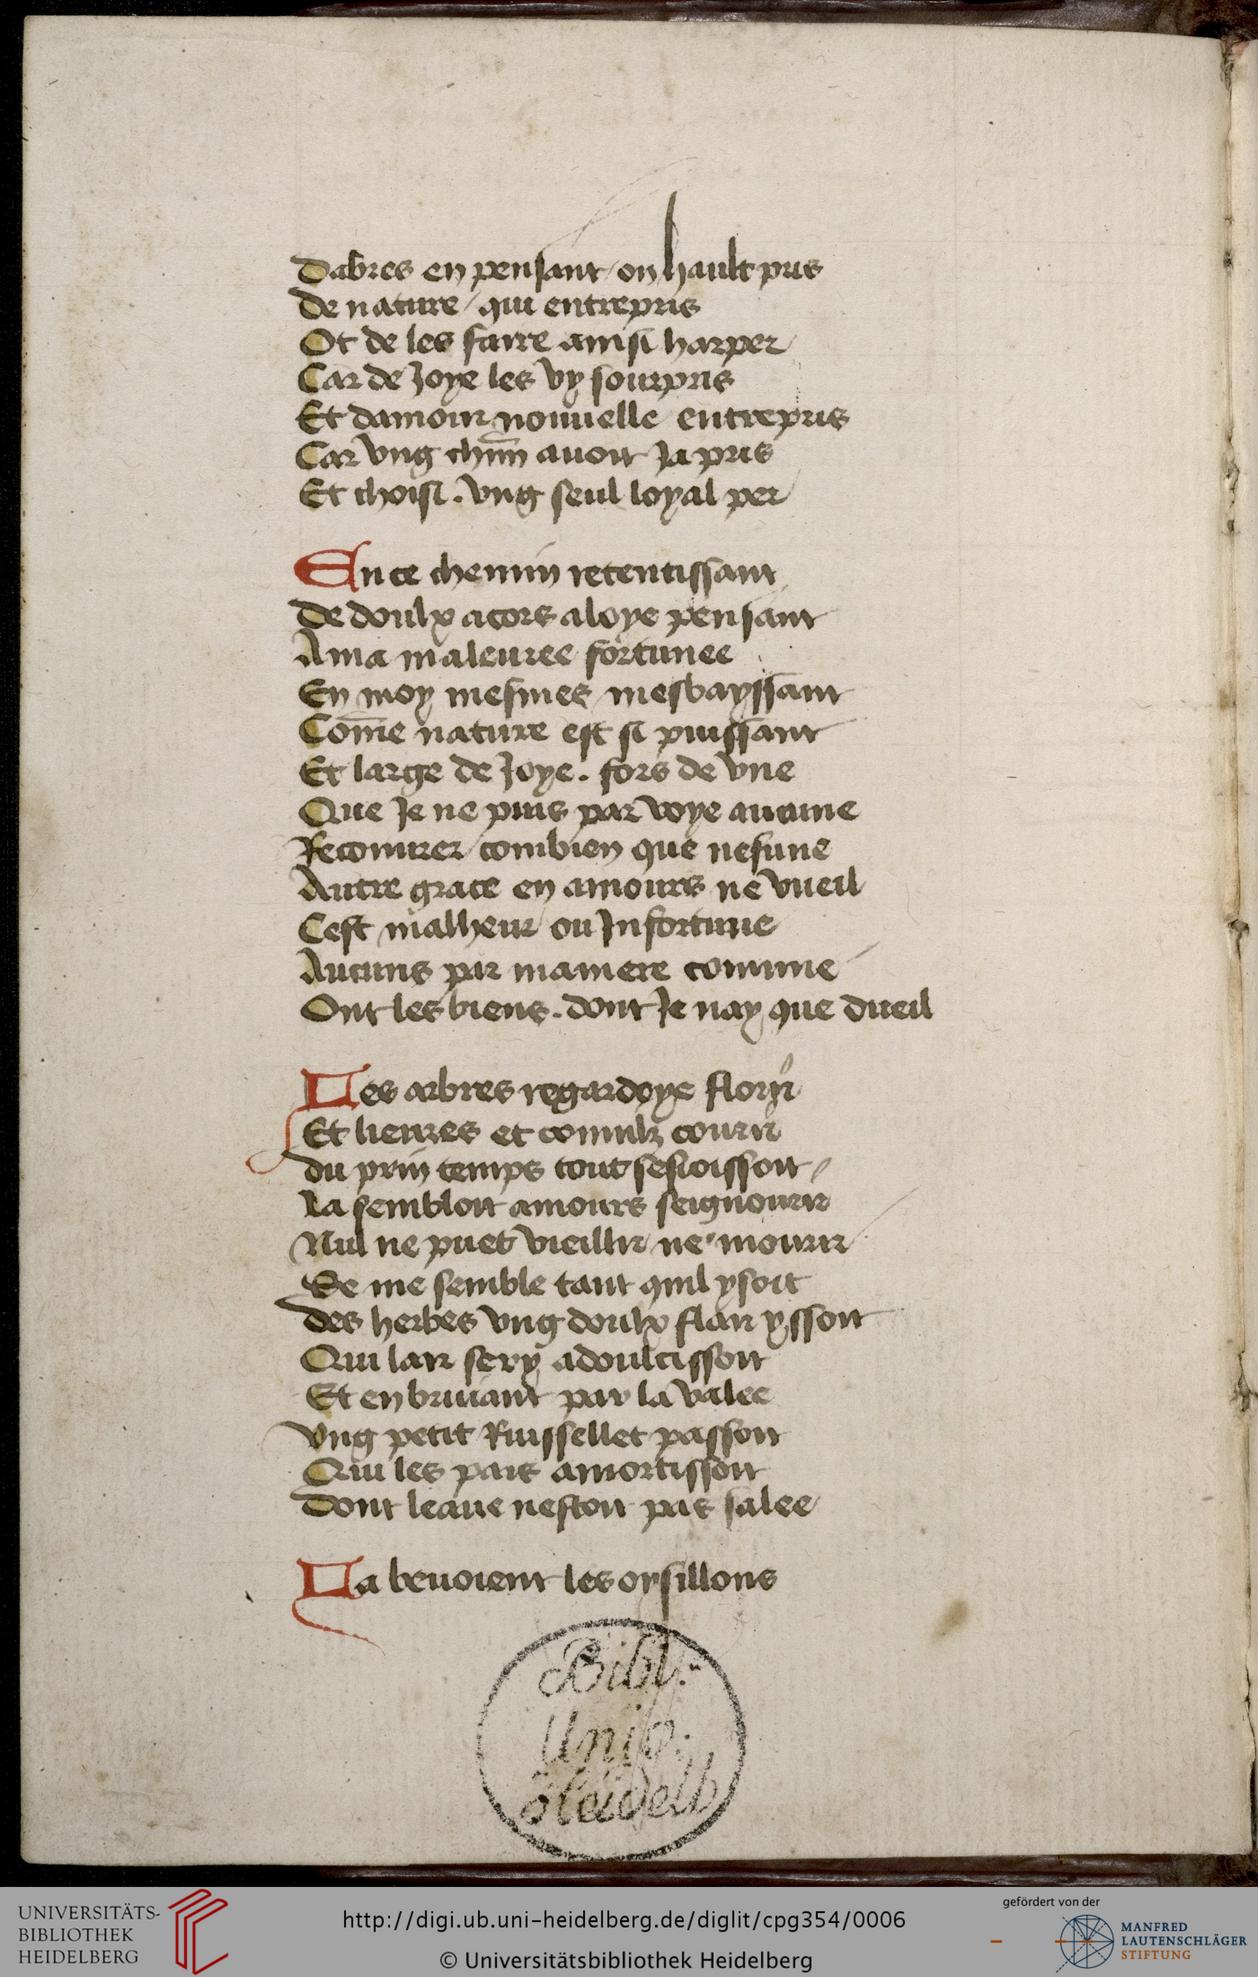 Dabres en pensant on hault pris
De nature / qui entrepris
Ot de les faire ainsi harper
Car de Joye les vy sourpris
Et damour nouuelle entrepris
Car vng chūn auoit Ja pris
Et choisi . vng seul loyal per
En ce chemin retentissant
De doulx acors aloye pensant
A ma maleuree fortunee
En moy mesmes mesbayssant
Com̄e nature est si puissant
Et large de Joye . fors de vne
Que Je ne puis par voye aucune
Recouurer combien que nesune
Autre grace en amours ne vueil
Cest malheur ou Infortune
Aucuns par maniere comune
Ont les biens . dont Je nay que dueil
Les arbres regardoye florir
Et lieures et connilz courir
du prin temps tout sesioissoit
La sembloit amours seignourir
Nul ne puet vieillir ne mourir
Se me semble tant quil ysoit
des herbes vng doulx flair yssoit
Qui lair sery adoulcissoit
Et en bruiant par la valee
Vng petit Ruissellet passoit
Qui les pais amortissoit
dont leaue nestoit pas salee
La beuoient les oysillons
Bibl.
Univ.
Heidelb
UNIVERSITÄTS-
BIBLIOTHEK
HEIDELBERG
http://digi.ub.uni-heidelberg.de/diglit/cpg354/0006
© Universitätsbibliothek Heidelberg
gefördert von der
MANFRED
LAUTENSCHLÄGER
STIFTUNG